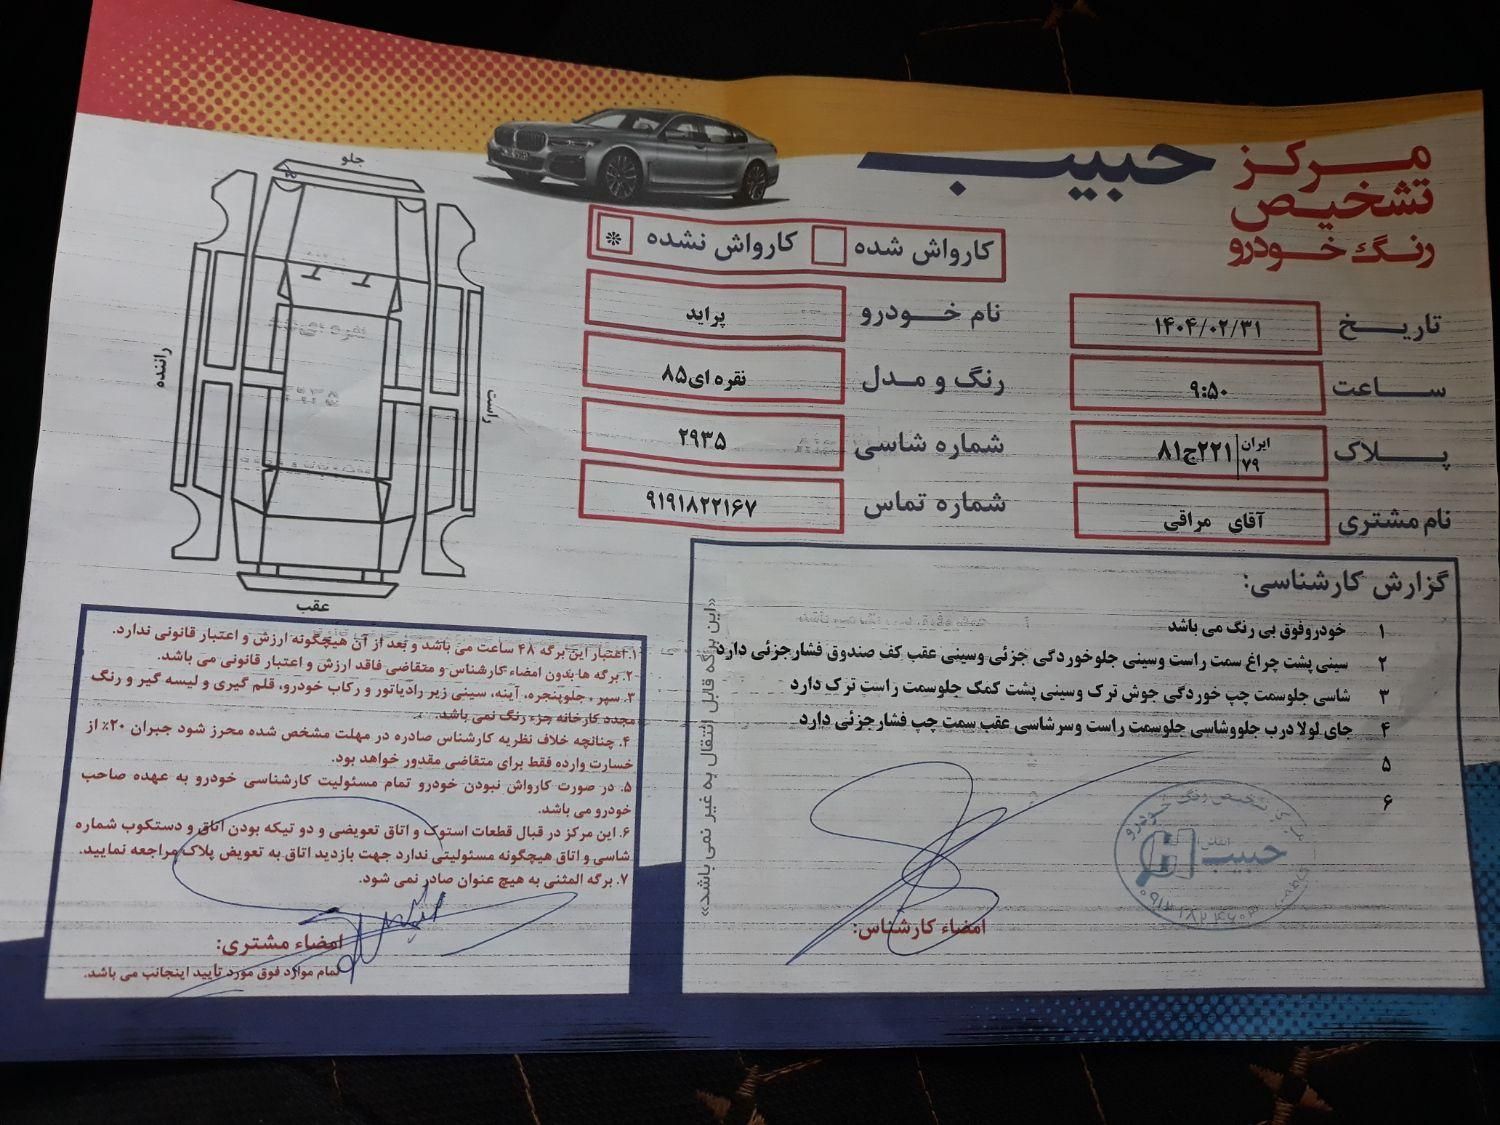 مرکز
تشخیص
رنگ خودرو
حبیب
کارواش شده
کارواش نشده *
تاریخ ۱۴۰۴/۰۲/۳۱
نام خودرو پراید
ساعت ۹:۵۰
رنگ و مدل نقره ای۸۵
پلاک ۲۲۱ج۸۱ ایران ۷۹
شماره شاسی ۲۹۳۵
نام مشتری آقای مراقی
شماره تماس ۹۱۹۱۸۲۲۱۶۷
جلو
راننده
راست
عقب
گزارش کارشناسی:
۱ خودروفوق بی رنگ می باشد
۲ سینی پشت چراغ سمت راست وسینی جلوخوردگی جزئی وسینی عقب کف صندوق فشارجزئی دارد
۳ شاسی جلوسمت چپ خوردگی جوش ترک وسینی پشت کمک جلوسمت راست ترک دارد
۴ جای لولا درب جلووشاسی جلوسمت راست وسرشاسی عقب سمت چپ فشارجزئی دارد
۵
۶
امضاء کارشناس:
«این برگه قابل انتقال به غیر نمی باشد»
۱. اعتبار این برگه ۴۸ ساعت می باشد و بعد از آن هیچگونه ارزش و اعتبار قانونی ندارد.
۲. برگه ها بدون امضاء کارشناس و متقاضی فاقد ارزش و اعتبار قانونی می باشد.
۳. سپر ، جلوپنجره، آینه، سینی زیر رادیاتور و رکاب خودرو، قلم گیری و لیسه گیر و رنگ
مجدد کارخانه جزء رنگ نمی باشد.
۴. چنانچه خلاف نظریه کارشناس صادره در مهلت مشخص شده محرز شود جبران ۲۰٪ از
خسارت وارده فقط برای متقاضی مقدور خواهد بود.
۵. در صورت کارواش نبودن خودرو تمام مسئولیت کارشناسی خودرو به عهده صاحب
خودرو می باشد.
۶. این مرکز در قبال قطعات استوک و اتاق تعویضی و دو تیکه بودن اتاق و دستکوب شماره
شاسی و اتاق هیچگونه مسئولیتی ندارد جهت بازدید اتاق به تعویض پلاک مراجعه نمایید.
۷. برگه المثنی به هیچ عنوان صادر نمی شود.
امضاء مشتری:
تمام موارد فوق مورد تأیید اینجانب می باشد.
حبیب